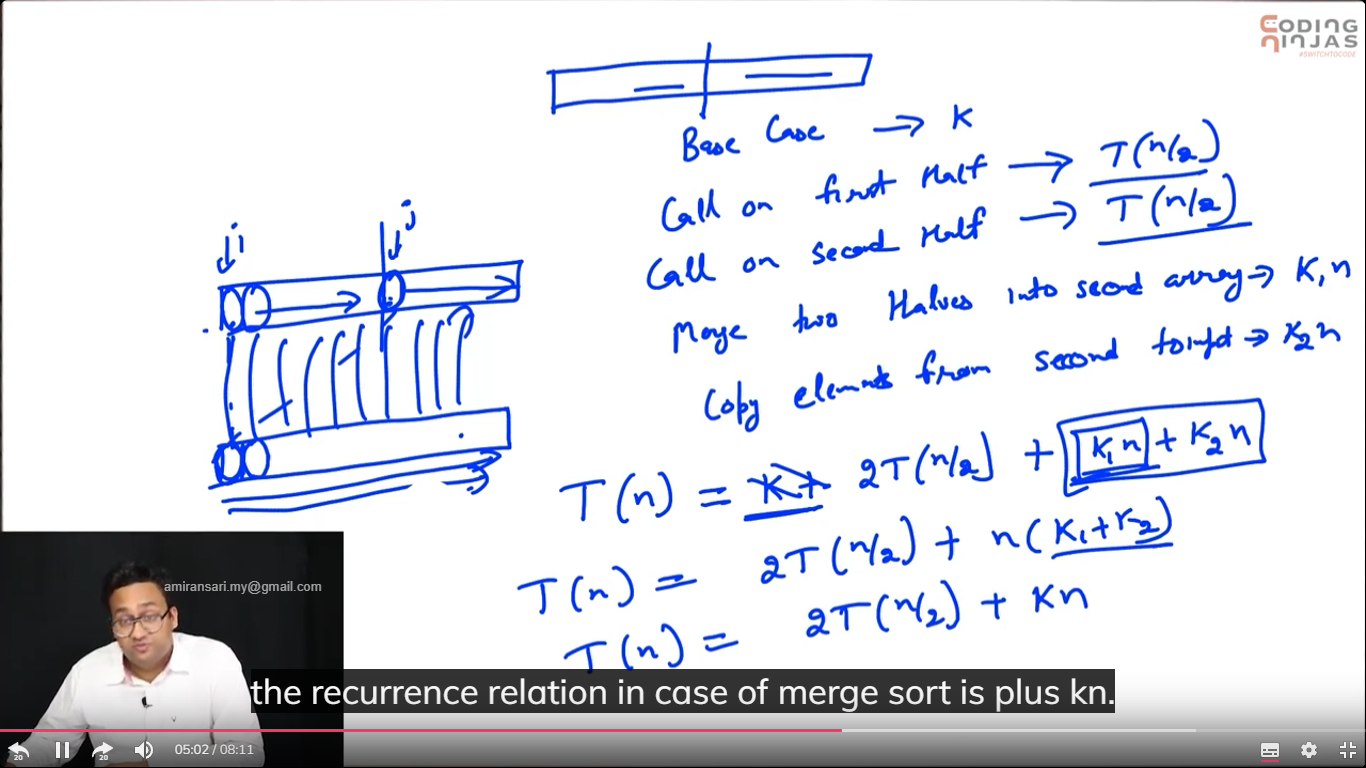 CODING
NINJAS
#SWITCHTOCODE
Base Case → K
Call on first Half → T(n/2)
Call on second Half → T(n/2)
Merge two Halves into second array → K₁n
Copy elements from second to input → K₂n
i
j
T(n) = K+ 2T(n/2) + K₁n + K₂n
T(n) = 2T(n/2) + n(K₁+K₂)
T(n) = 2T(n/2) + Kn
amiransari.my@gmail.com
the recurrence relation in case of merge sort is plus kn.
20
20
05:02 / 08:11